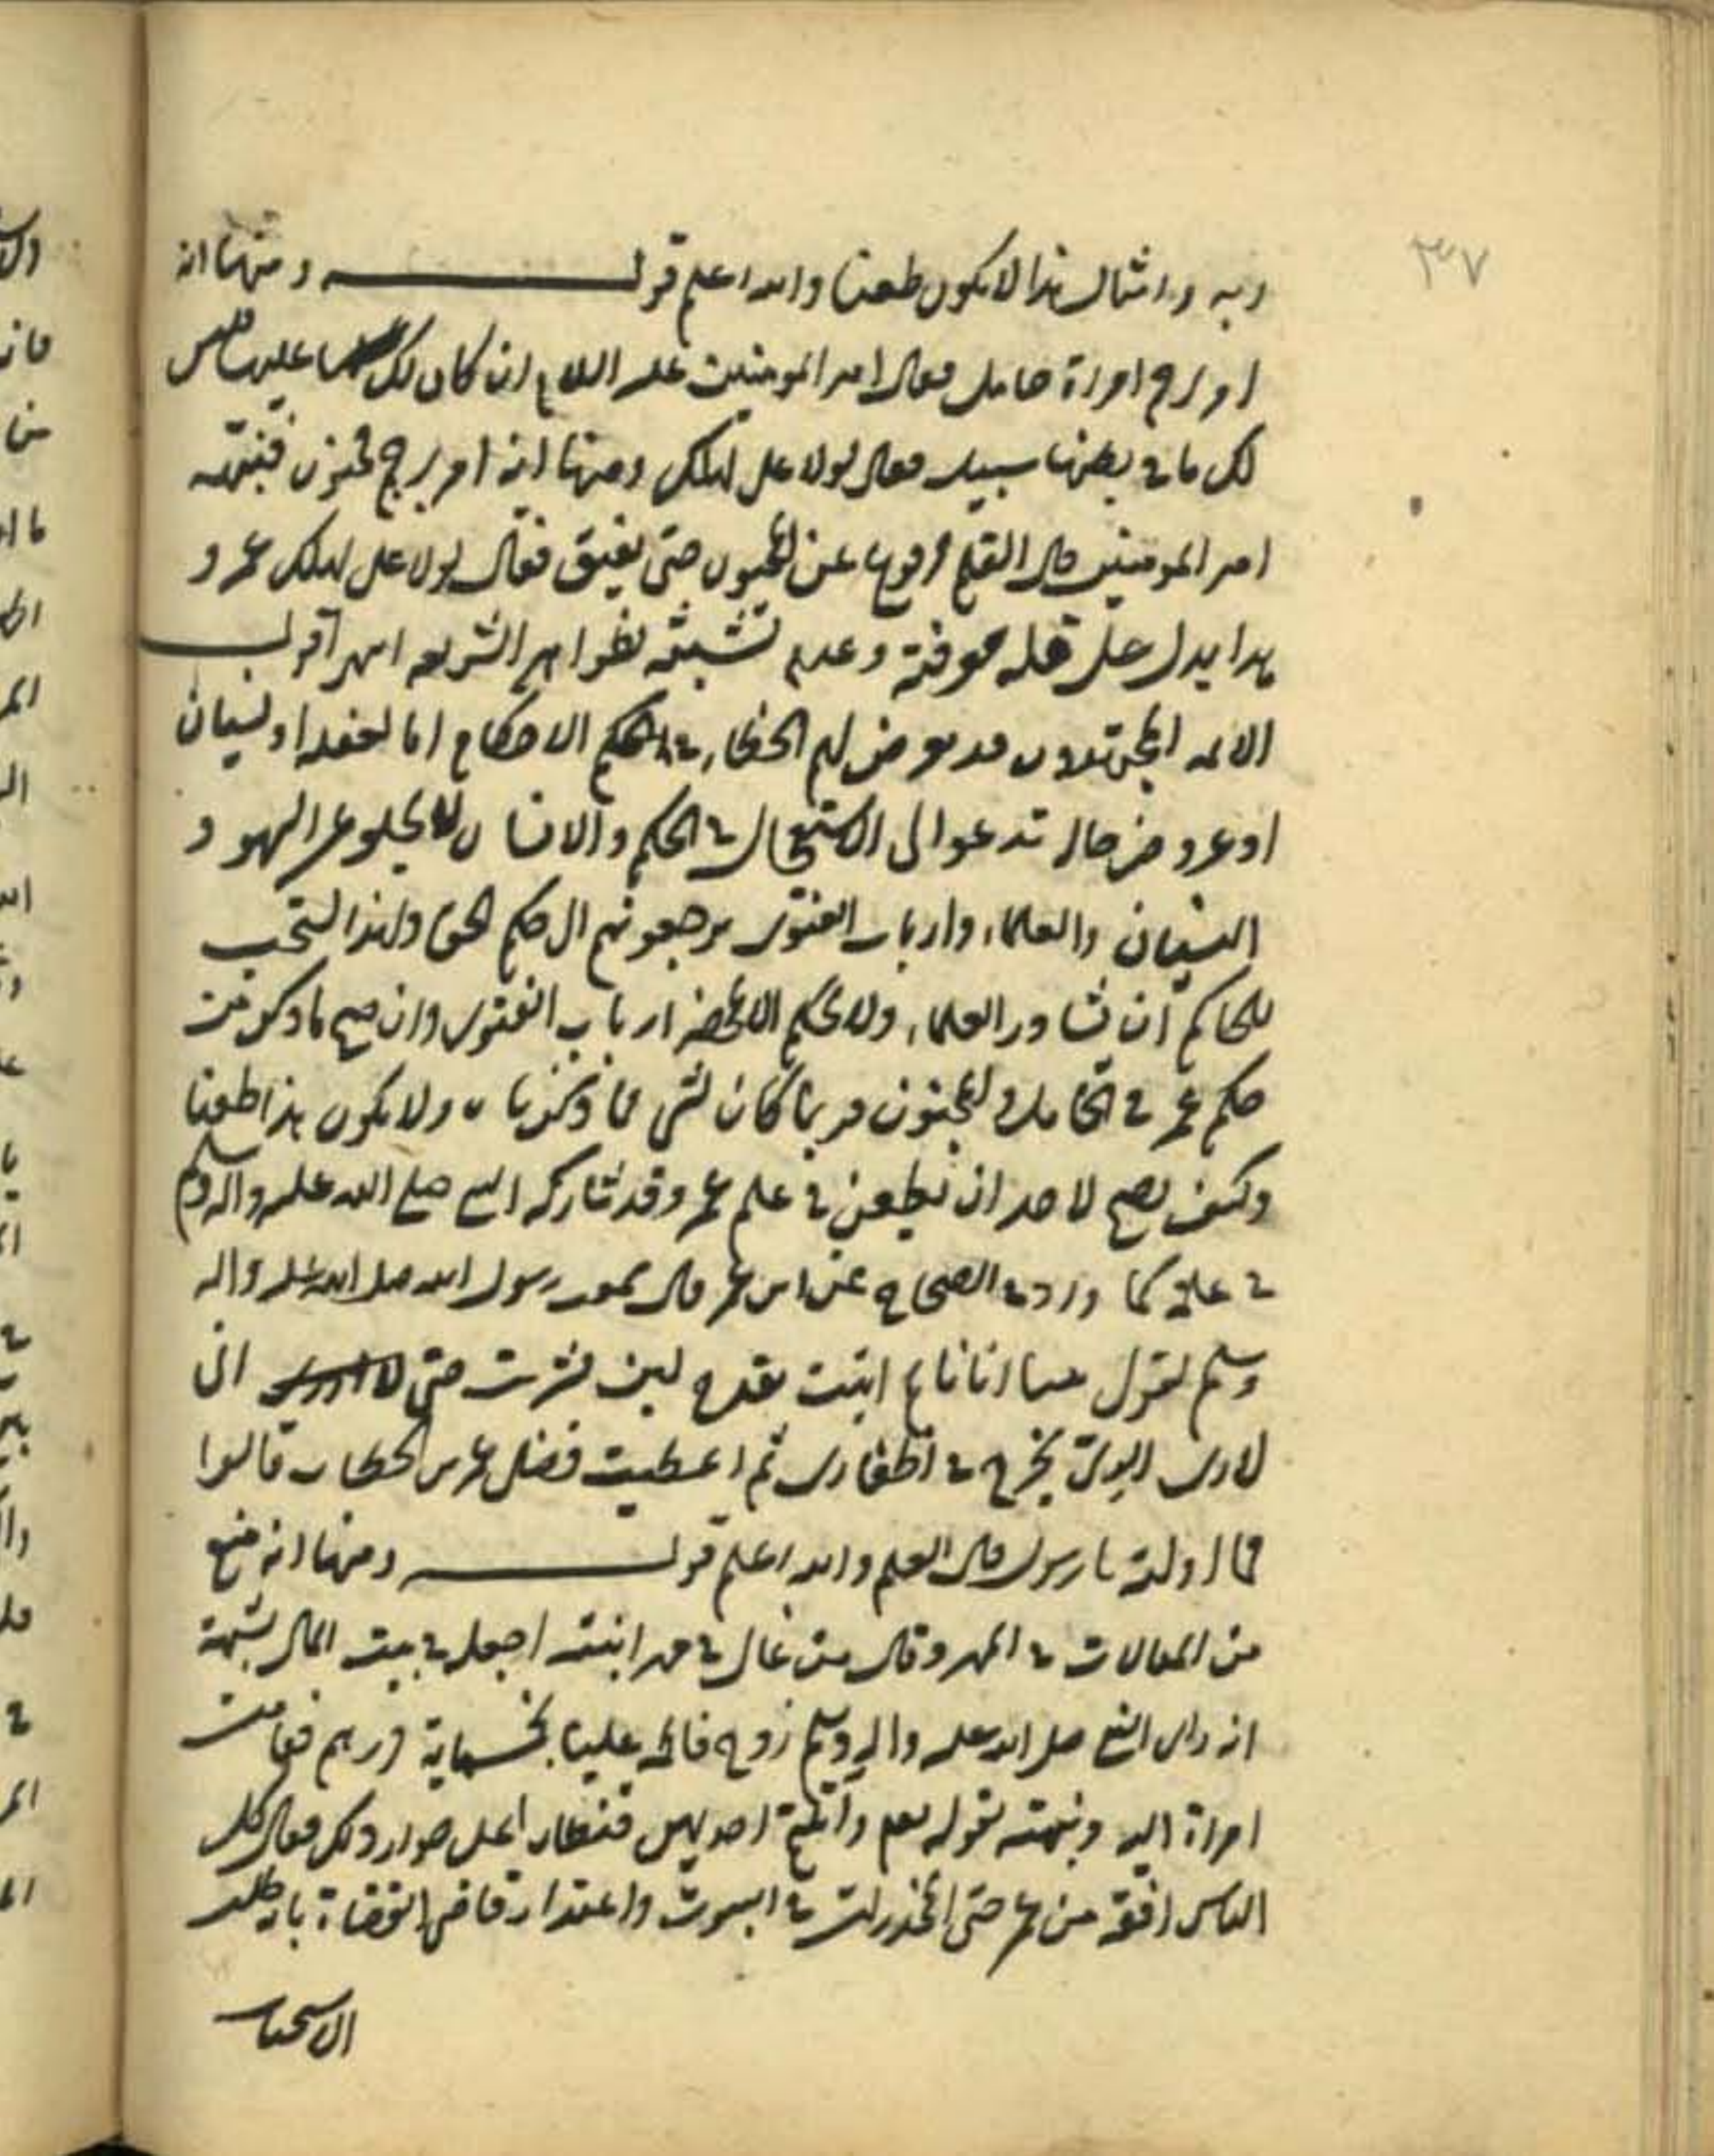 ٣٧
وبه وامثال هذا لا يكون طعنا والله اعلم قوله ومنها انه
امر برجم امراة حامل فقال امير المومنين عليه السلام ان كان لك عليها فليس
لك ما في بطنها سبيل فقال لولا علي لهلك ومنها انه امر برجم مجنون فنبهه
امير المومنين قال القلم مرفوع عن المجنون حتى يفيق فقال لولا علي لهلك عمر و
هذا يدل على قلة معرفته وعدم تشبثه بظواهر الشريعة انتهى اقول
الائمة المجتهدون قد يعرض لهم الخطاء في الحكم الاحكام اما لغفلة او نسيان
او عروض حالة تدعو الى الاستعجال في الحكم والانسان لا يخلو عن السهو و
النسيان والعلماء وارباب الفتوى يرجعونهم الى حكم الحق ولهذا يستحب
للحاكم ان يشاور العلماء ولا يحكم الا بمحضر ارباب الفتوى وان صح ما ذكر من
حكم عمر في الحامل والمجنون فربما كان لشي مما ذكرنا ولا يكون هذا طعنا
وكيف يصح لاحد ان يطعن في علم عمر وقد شاركه النبي صلى الله عليه واله وسلم
في علمه كما ورد في الصحاح عن ابن عمر قال سمعت رسول الله صلى الله عليه واله
وسلم يقول بينا انا نايم اتيت بقدح لبن فشربت حتى اني
لارى الري يخرج في اظفاري ثم اعطيت فضلي عمر بن الخطاب قالوا
فما اولته يا رسول قال العلم والله اعلم قوله ومنها انه منع
من المغالات في المهر وقال من غالى في مهر ابنته اجعله في بيت المال بشبهة
انه راى النبي صلى الله عليه واله وسلم زوج فاطمة عليها بخمسماية درهم فقامت
امراة اليه ونبهته بقوله تعم واتيتم احديهن قنطارا على جواز ذلك فقال كل
الناس افقه من عمر حتى المخدرات في البيوت واعتذار قاضي القضاة بانه طلب
الاستحباب